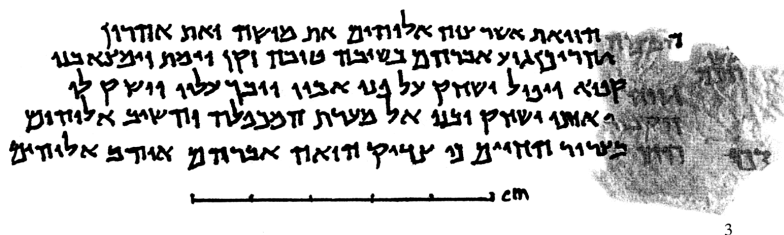 הזואת אשר צוה אלוהים את מושה ואת אהרון
גוע אברהם בשיבה טובה זקן וימת וימצא בנו
ויפול ישחק על פני אביו ויבך עליו וישק לו
ישחק ובנו אל מערת המכפלה והשיב אלוהים
בצרור החיים כי צדיק הואה אברהם אוהב אלוהים
cm
3